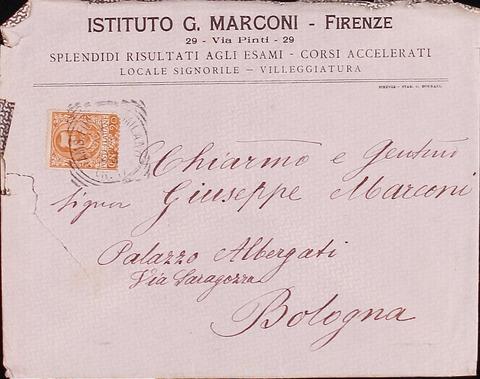 ISTITUTO G. MARCONI - FIRENZE
29 - Via Pinti - 29
SPLENDIDI RISULTATI AGLI ESAMI - CORSI ACCELERATI
LOCALE SIGNORILE - VILLEGGIATURA
Chiarmo e Gentmo
Signor Giuseppe Marconi
Palazzo Albergati
Via Saragozza
Bologna